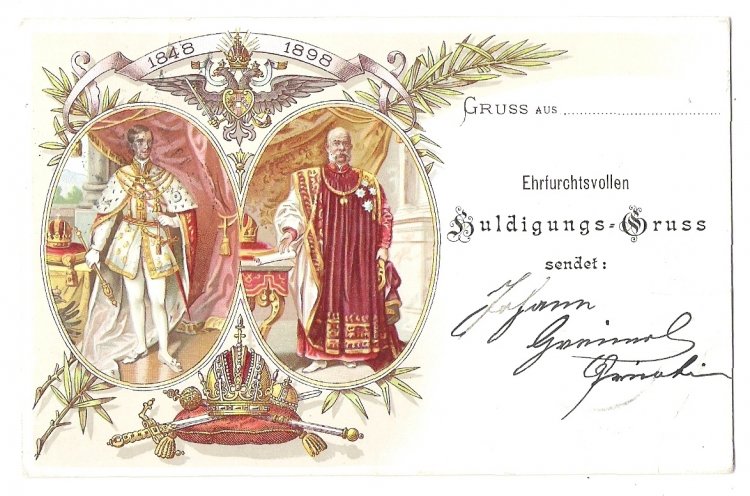 1848 1898
GRUSS AUS
Ehrfurchtsvollen
Huldigungs=Gruss
sendet:
Johann